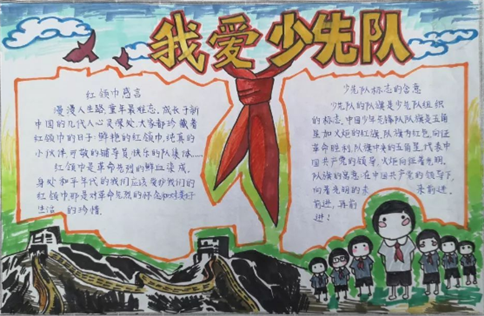 我爱少先队
红领巾感言
漫漫人生路,童年最难忘。成长于新
中国的几代人心灵深处,大家都珍藏着
红领巾的日子:鲜艳的红领巾,纯真的
小伙伴可敬的辅导员,快乐的队集体……
红领巾是革命先烈的鲜血染成,
身处和平年代的我们应该爱护我们的
红领巾那是对革命先烈的怀念和对美好
生活的珍惜
少先队标志的含意
少先队的队旗是少先队组织
的标志,中国少年先锋队队旗是五角
星加火炬的红旗,队旗为红色,象征
革命胜利,队旗中央的五角星,代表中
国共产党的领导,火炬象征着光明,
队旗的寓意:在中国共产党的领导下,
向着光明的未来前进,
前进,再前
进!